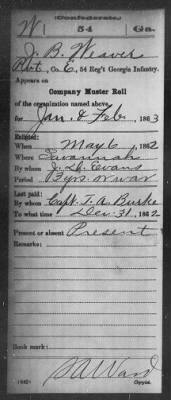 (Confederate.)
W 54 Ga.
J. B. Weaver
Pvt., Co. E, 54 Reg't Georgia Infantry.
Appears on
Company Muster Roll
of the organization named above,
for Jan. & Feb., 1863
Enlisted:
When May 6, 1862
Where Savannah
By whom J. W. Evans
Period 3 yrs. or war
Last paid:
By whom Capt. T. A. Burke
To what time Dec. 31, 1862
Present or absent Present
Remarks:
Book mark:
(642)
Copyist.